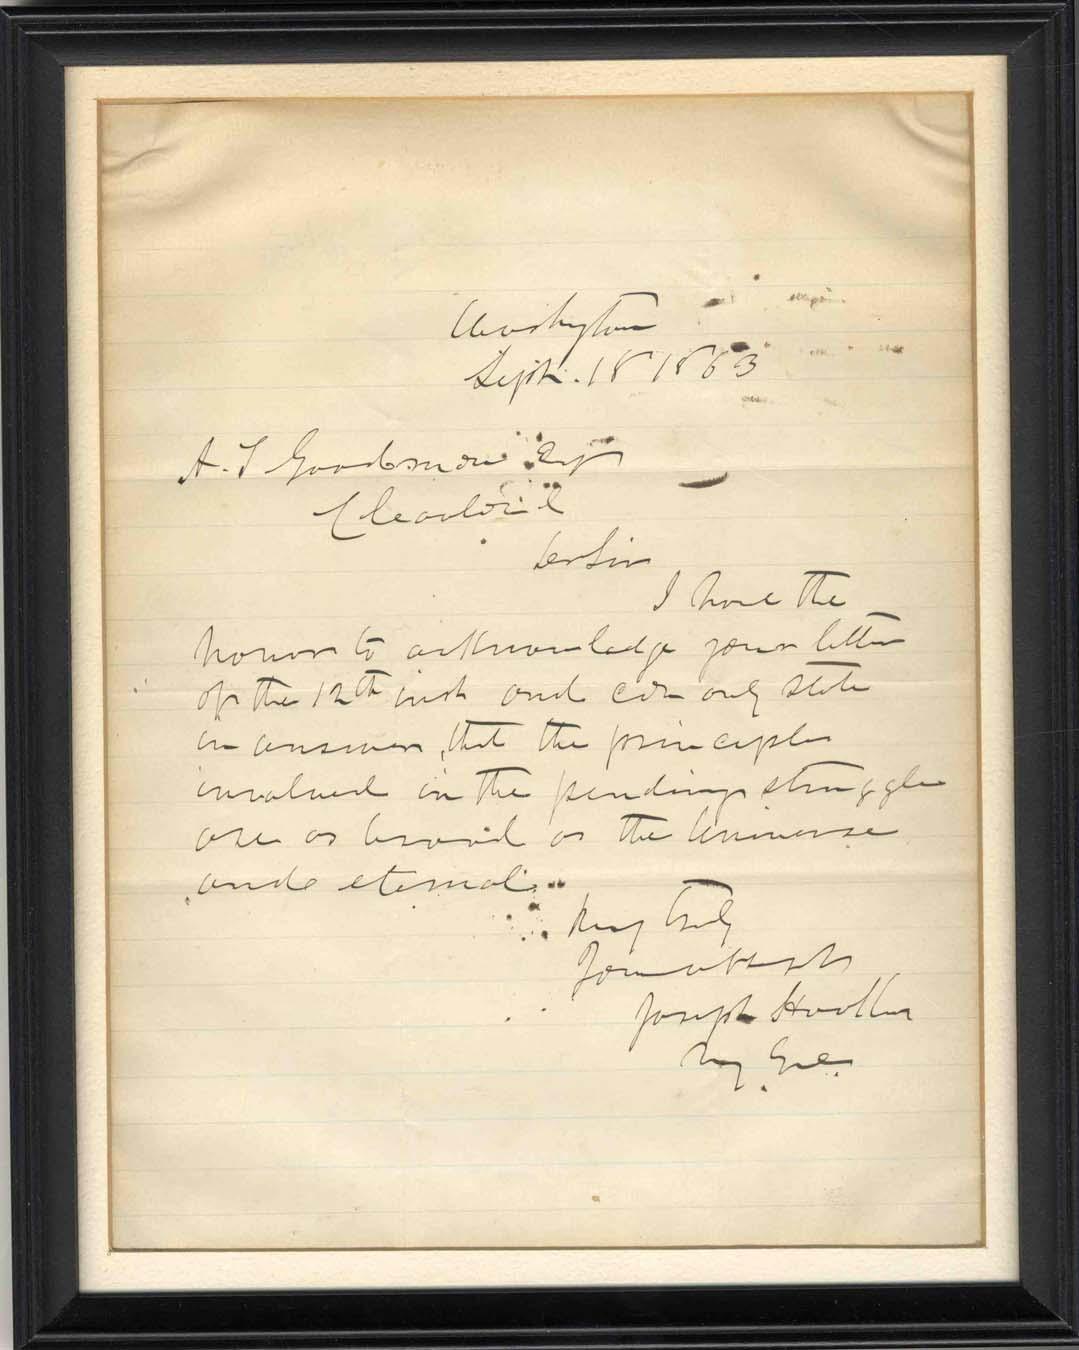 Washington
Sept. 18 1863
A. T Goodman Esq
Cleaveland
Dr Sir
I have the
honor to acknowledge your letter
of the 12th inst and can only state
in answer, that the principles
involved in the pending struggle
are as broad as the Universe
and eternal.
Very Truly
Your obt servt
Joseph Hooker
Maj Genl.